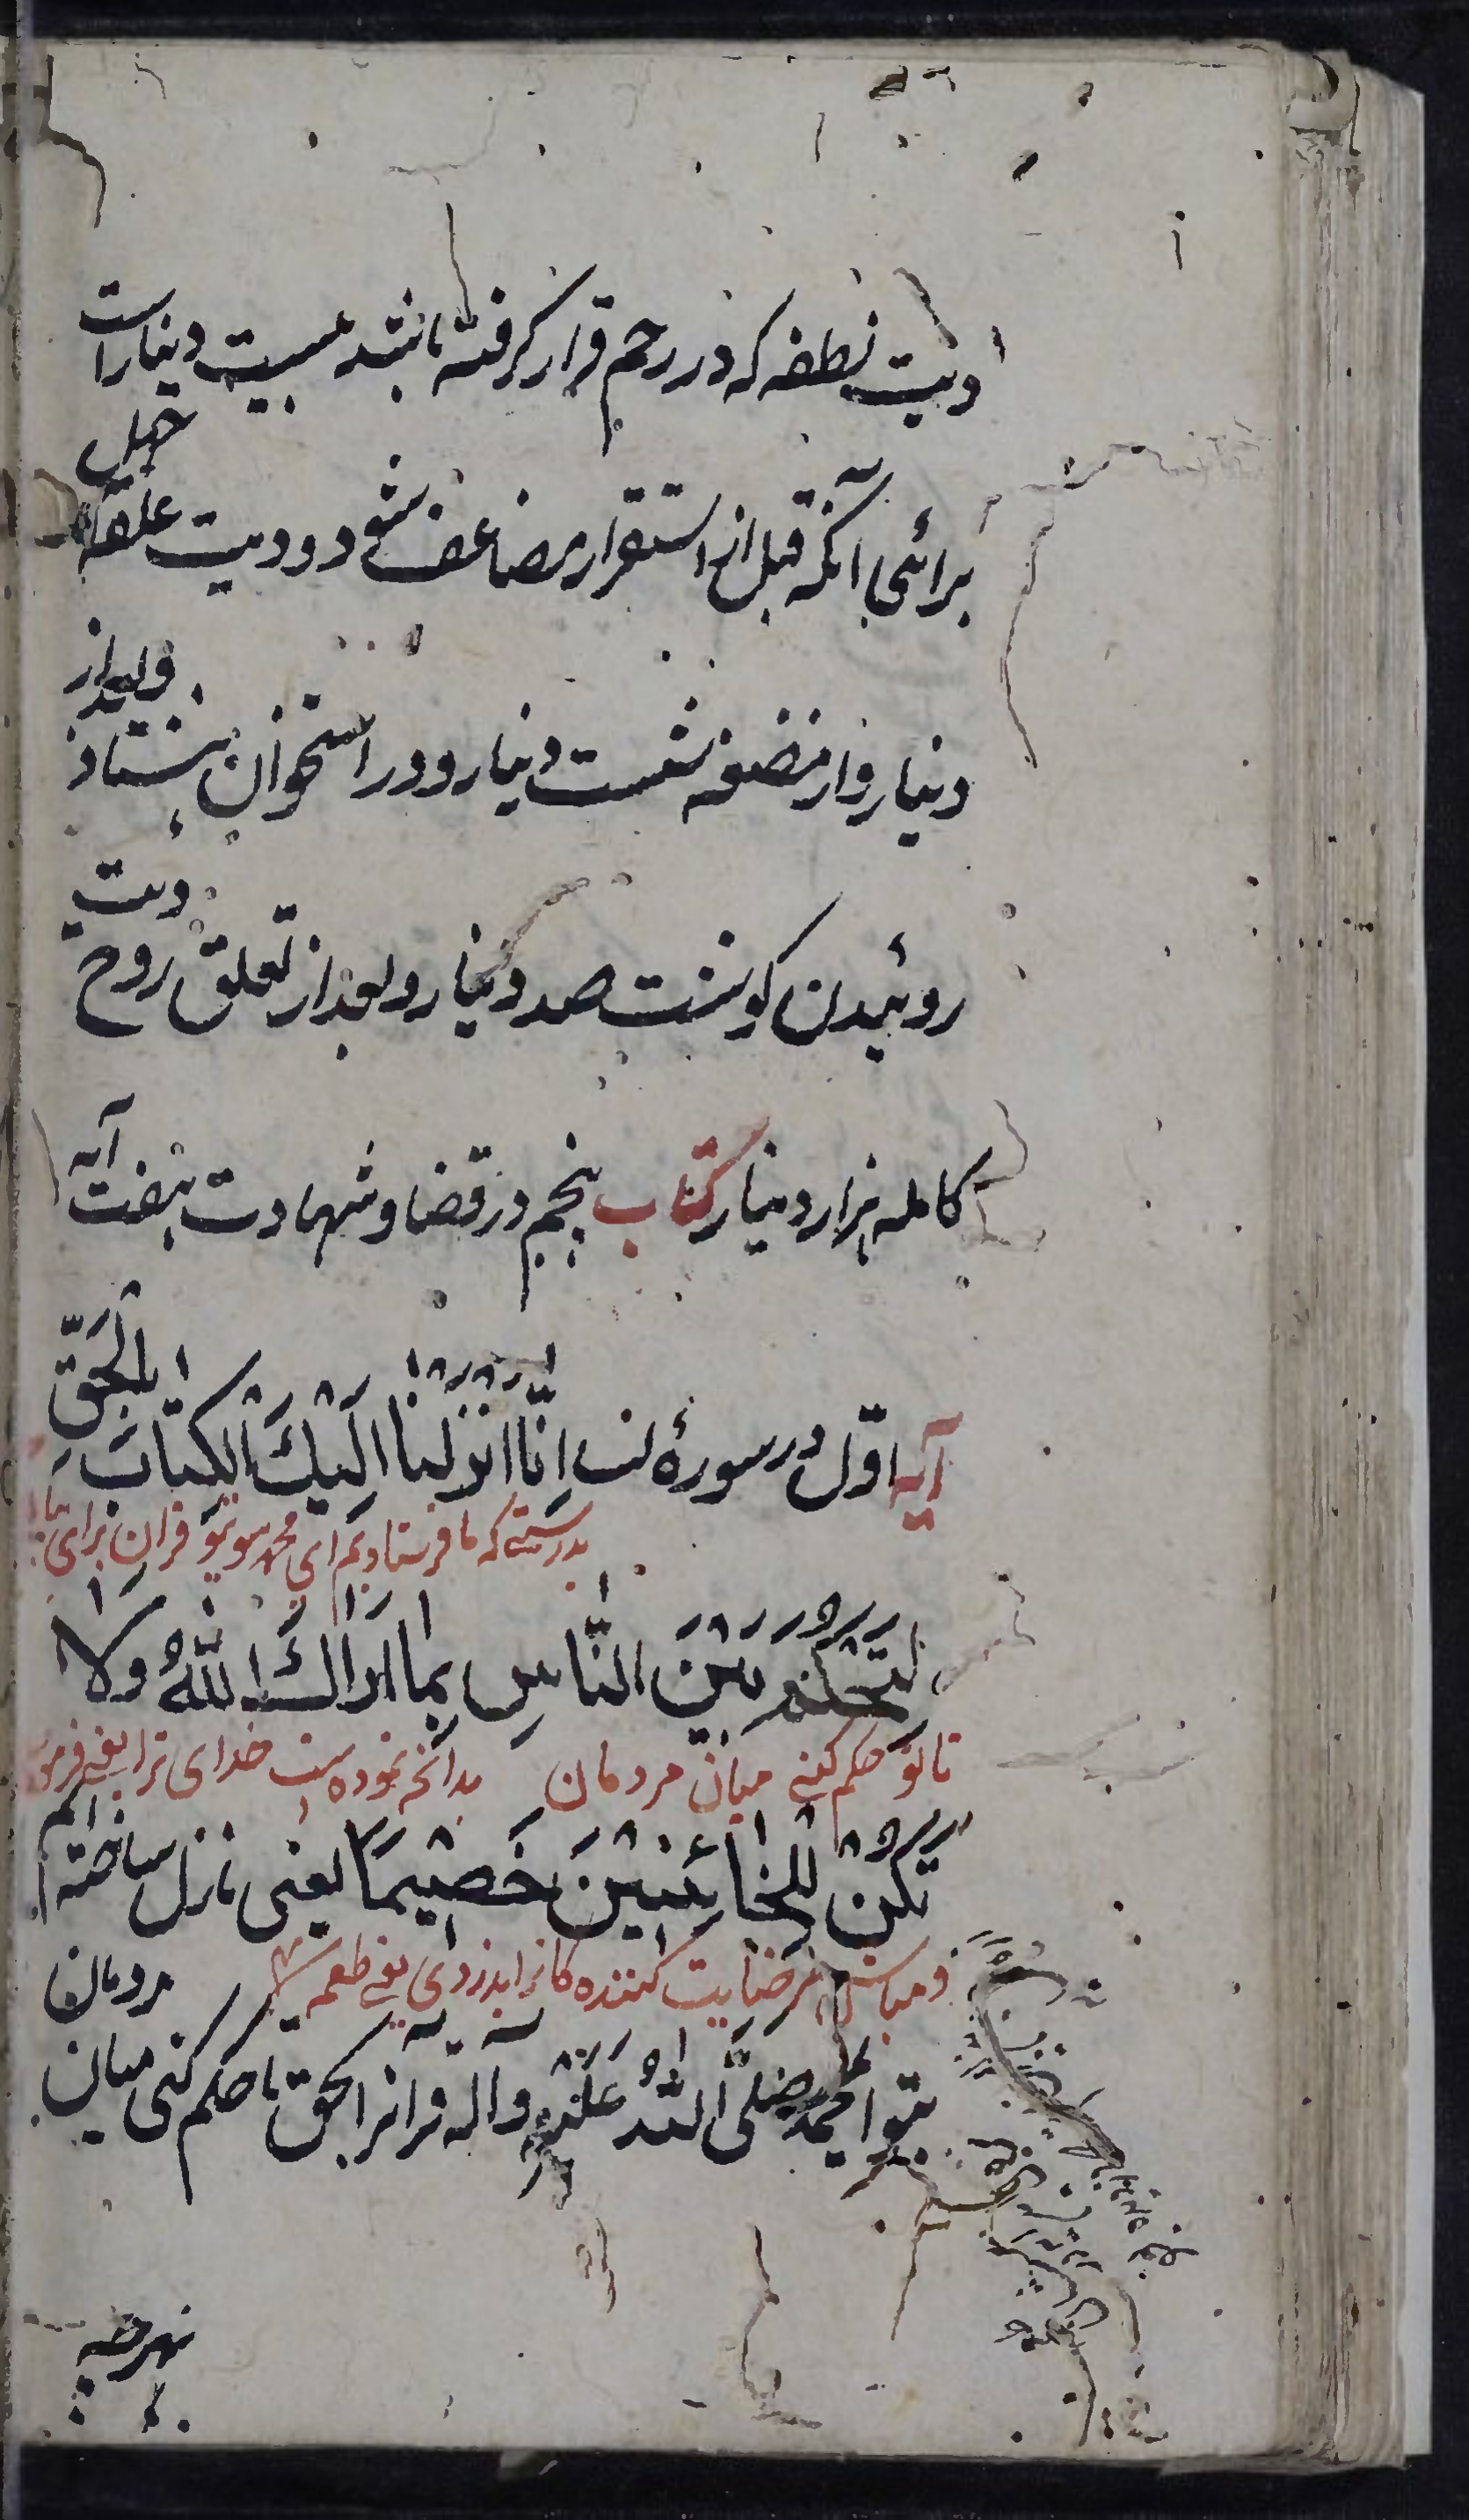 ودیت نطفه که در رحم قرار کرفته باشد بیست دینار است
برائی آنکه قبل از استقرار مضاعف شود و دیت علقه چهل
دینار و از مضغه شصت دینار و در استخوان هشتاد و بعد از
روئیدن کوشت صد دینار و بعد از تعلق روح دیت
کامله هزار دینار کتاب پنجم در قضا و شهادت هفت آیه
آیه اوّل در سورهٔ نسا اِنّا اَنْزَلْنا اِلَيْكَ الْكِتابَ بِالْحَقِّ
بدرستی که ما فرستادیم ای محمد سوی تو قرآن برای
لِتَحْكُمَ بَيْنَ النّاسِ بِما اَراكَ اللّٰهُ وَلا
تا تو حکم کنی میان مردمان بدانچه نموده است خدای ترا یعنی
تَكُنْ لِلْخائِنِيْنَ خَصِيْمًا یعنی نازل ساخته ایم
و مباش مر خیانت کننده کانرا
بتو ای محمد صلّی اللّه علیه واله قرانرا بحق تا حکم کنی میان مردمان
بهرچه